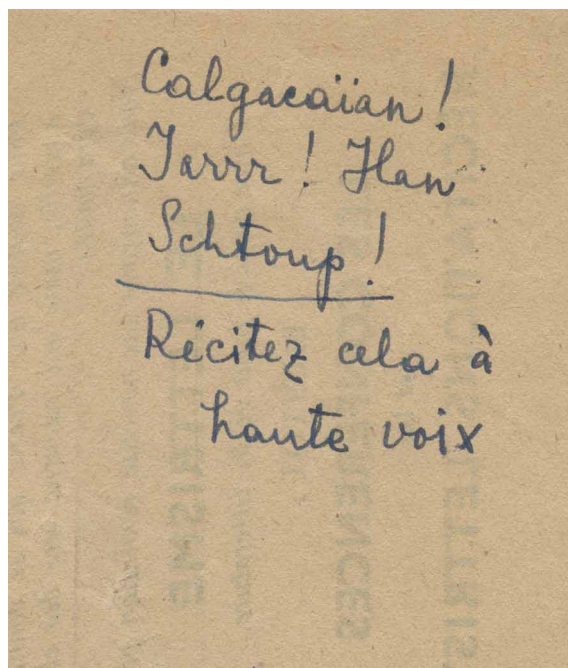 Calgacaïan!
Jarrr! Han
Schtoup!
Récitez cela à
haute voix